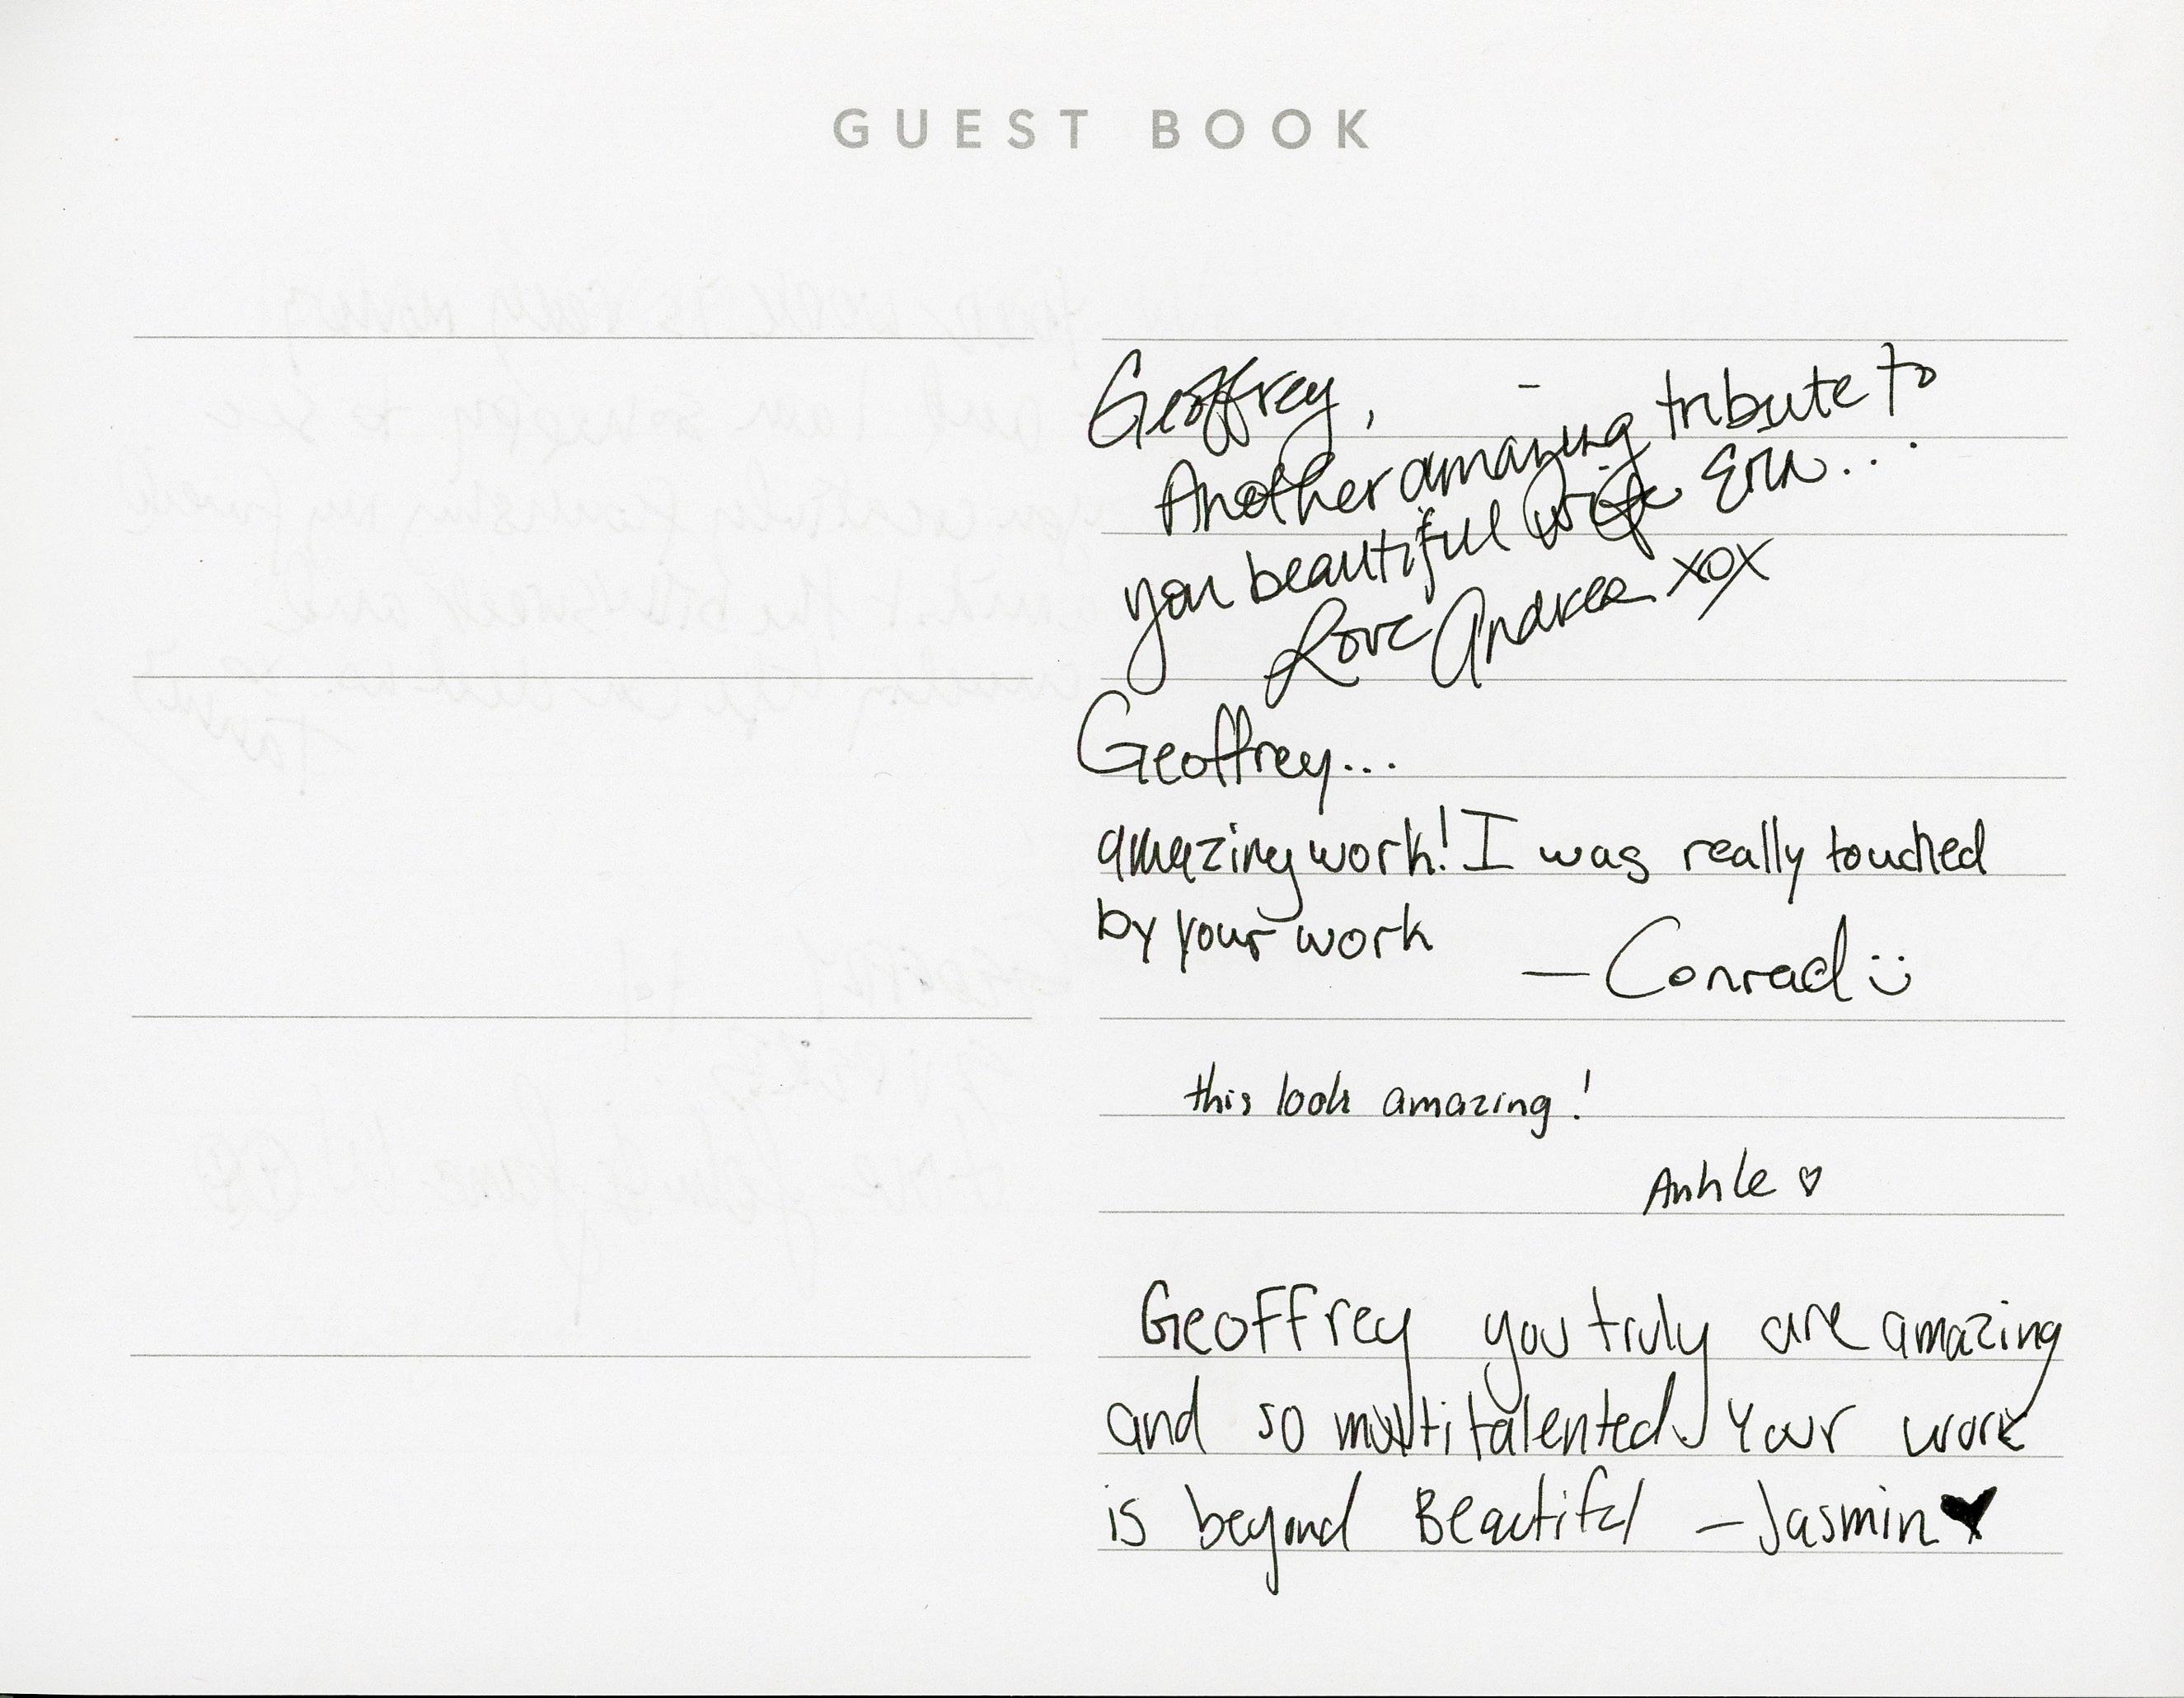 GUEST BOOK
Geoffrey,
Another amazing tribute to
you beautiful wife Erin...
Love Andrea xox
Geoffrey...
amazing work! I was really touched
by your work
— Conrad :)
this look amazing!
Anhle ♡
Geoffrey you truly are amazing
and so multitalented Your work
is beyond Beautiful — Jasmin ♥